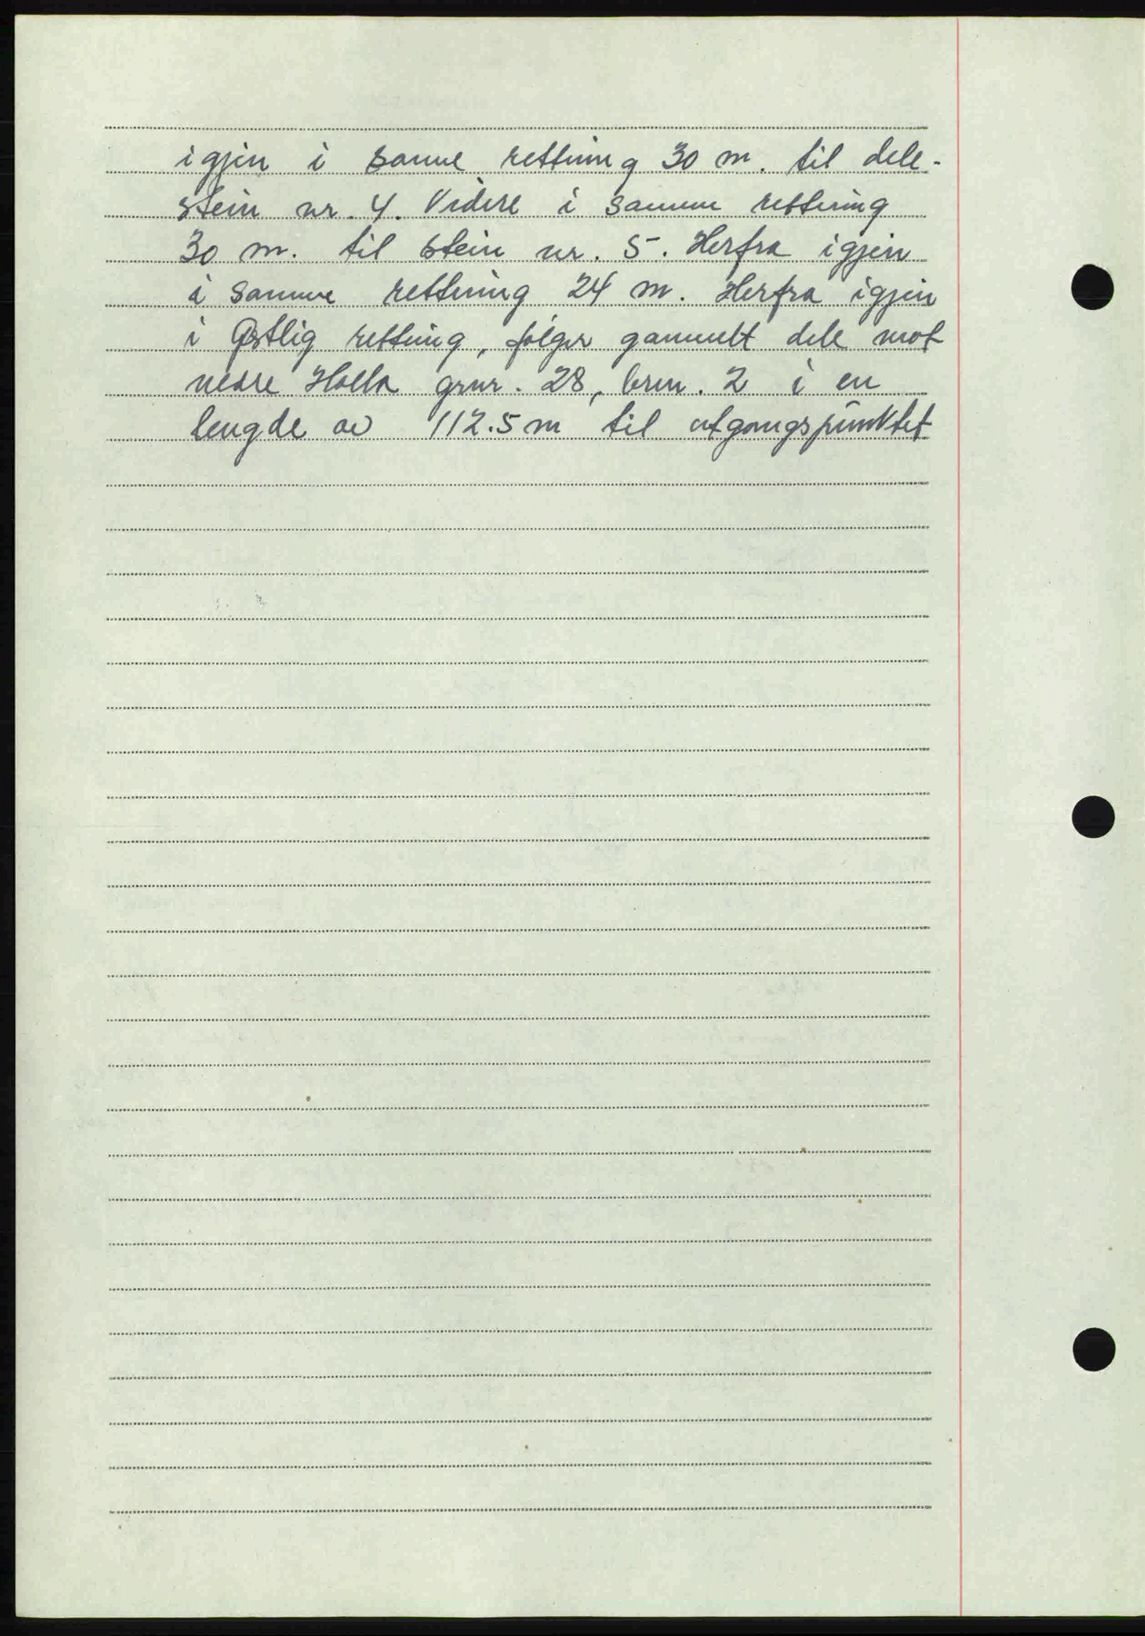 igjen i samme rettning 30 m. til dele-
stein nr. 4. Videre i samme rettning
30 m. til stein nr. 5. Herfra igjen
i samme rettning 24 m. Herfra igjen
i Østlig rettning, følger gammelt dele mot
nedre Holla grnr. 28, brnr. 2 i en
lengde av 112.5 m til utgangspunktet